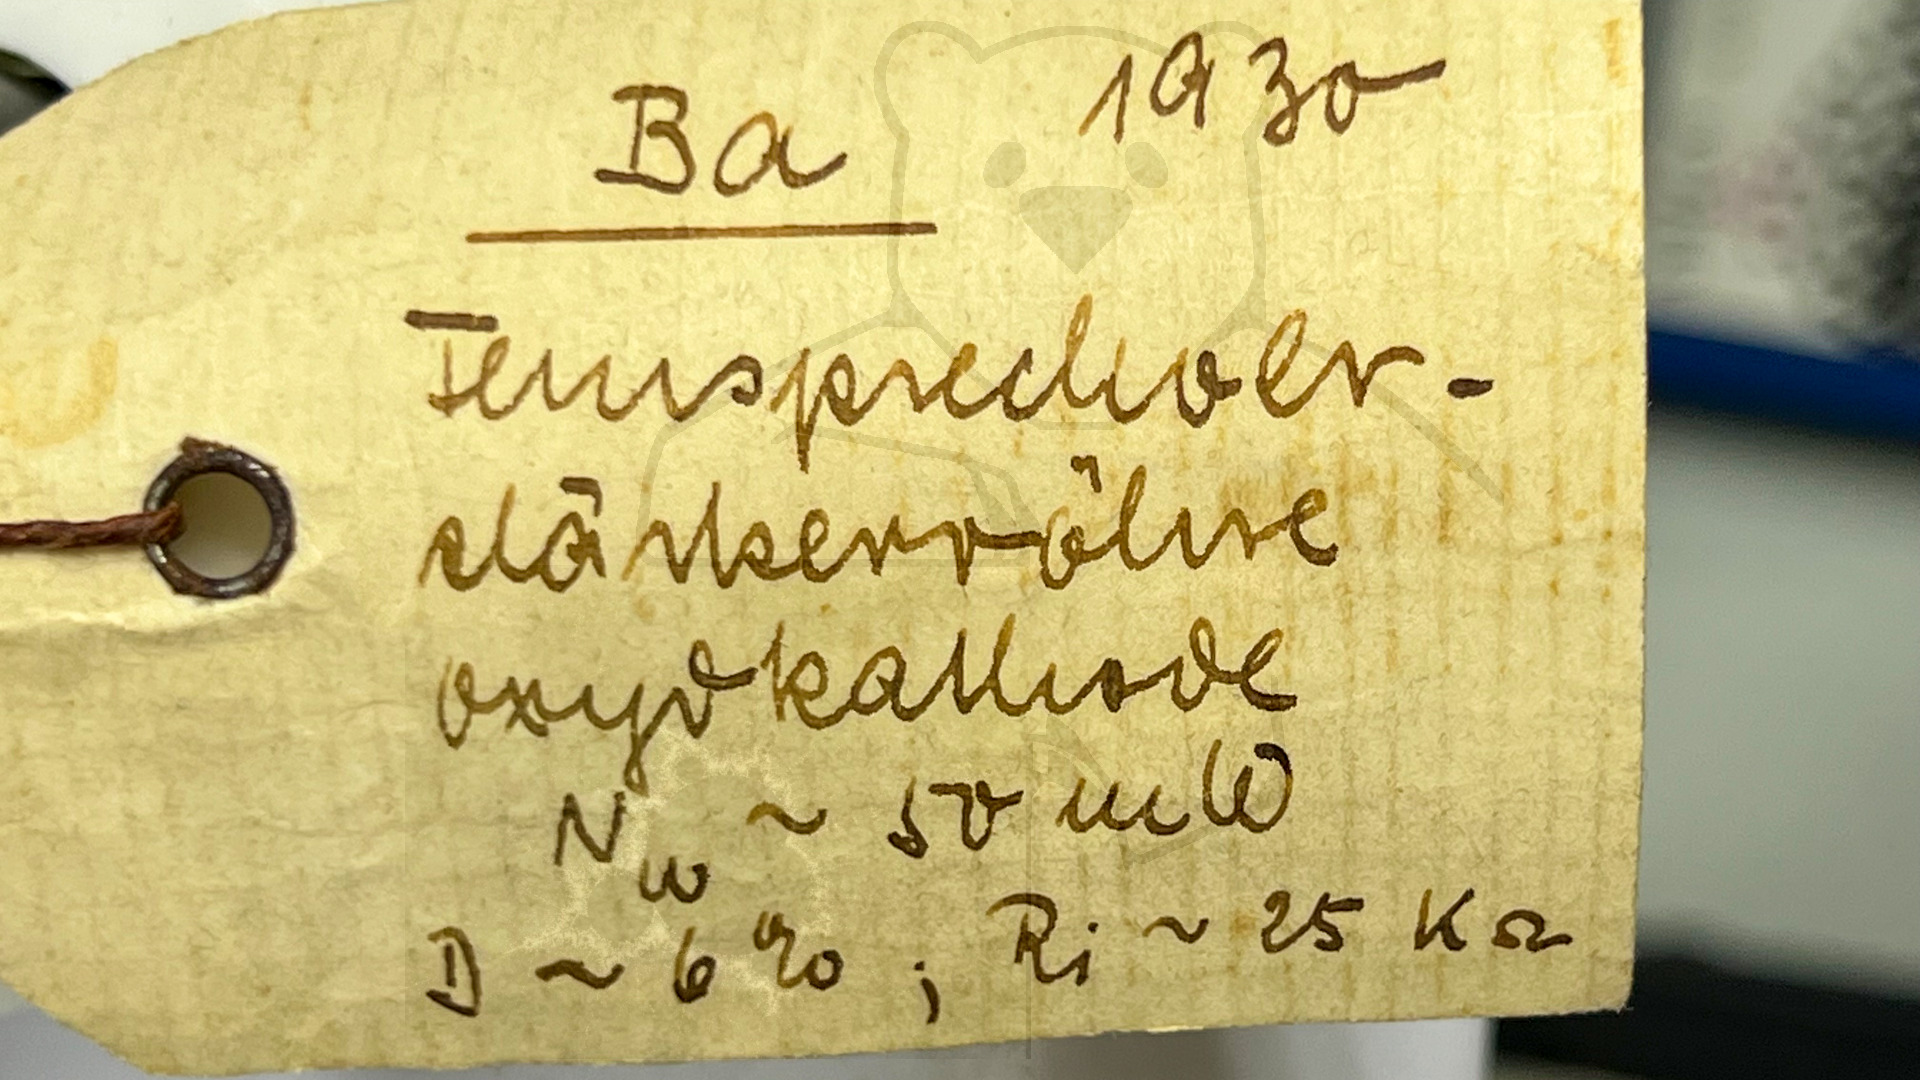 Ba 1930
Fernsprechver-
stärkerröhre
oxydkathode
Nw ~ 50 mW
D ~ 6% ; Ri ~ 25 KΩ